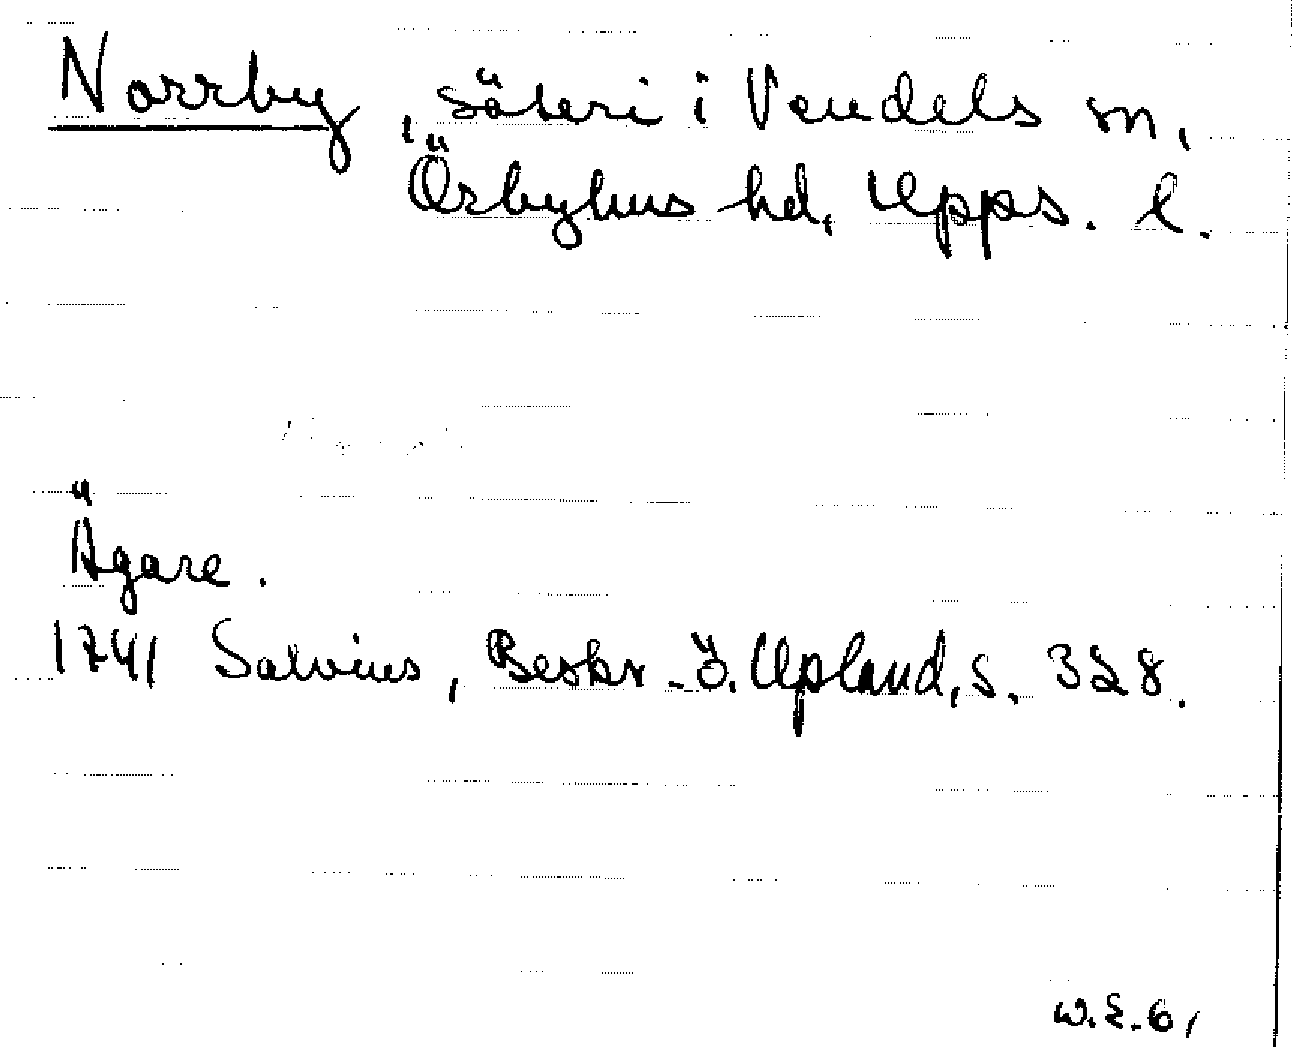 Norrby, säteri i Vendels sn,
Örbyhus hd, Upps. l.
Ägare.
1741 Salvius, Beskr. ö. Upland, s. 328.
W.E. 61